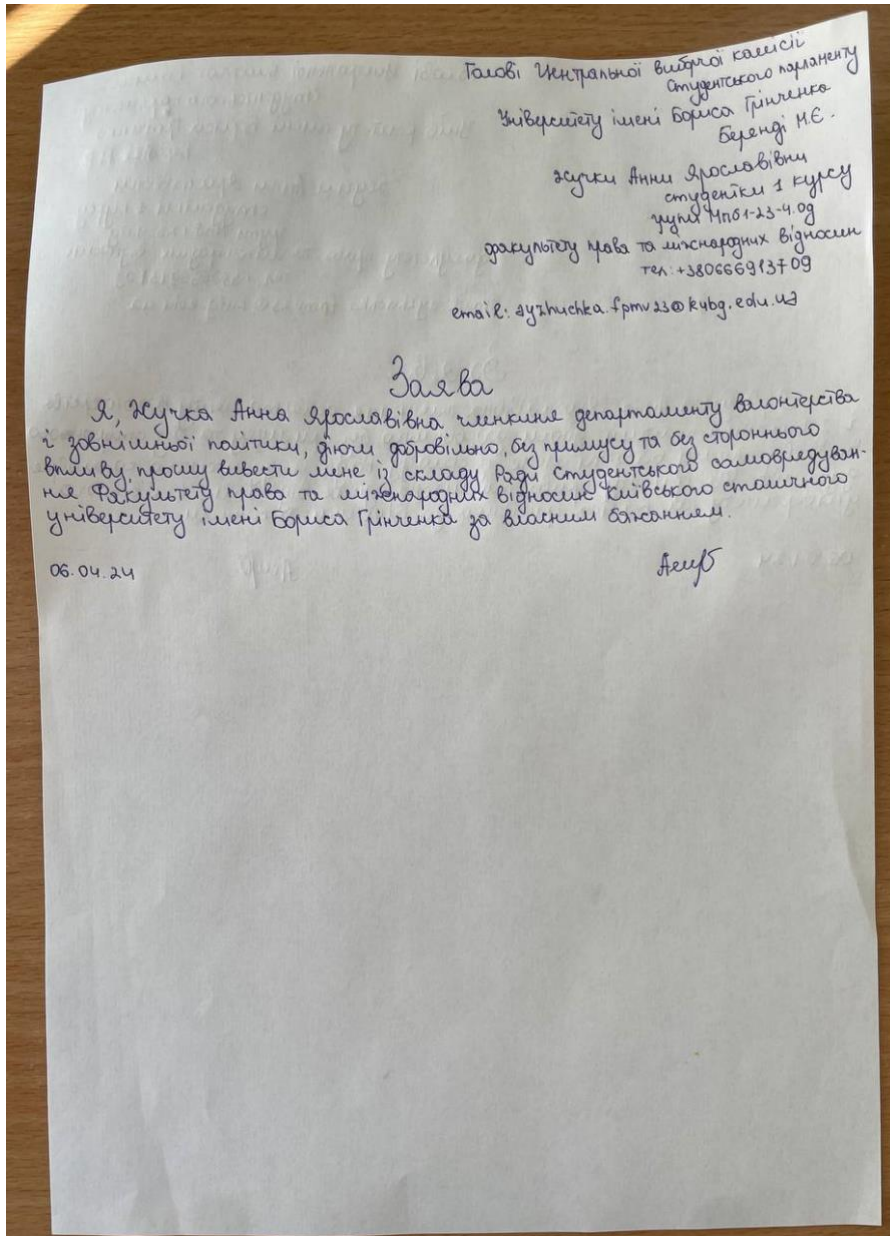 Голові Центральної виборчої комісії
Студентського парламенту
Університету імені Бориса Грінченка
Беренді М.Є.
Жучки Анни Ярославівни
студентки 1 курсу
групи Мпб1-23-4.0д
факультету права та міжнародних відносин
тел: +380666913709
email: ayzhuchka.fpmv23@kubg.edu.ua
Заява
Я, Жучка Анна Ярославівна членкиня департаменту волонтерства
і зовнішньої політики, діючи добровільно, без примусу та без стороннього
впливу, прошу вивести мене із складу Ради студентського самоврядуван-
ня Факультету права та міжнародних відносин Київського столичного
університету імені Бориса Грінченка за власним бажанням.
06.04.24